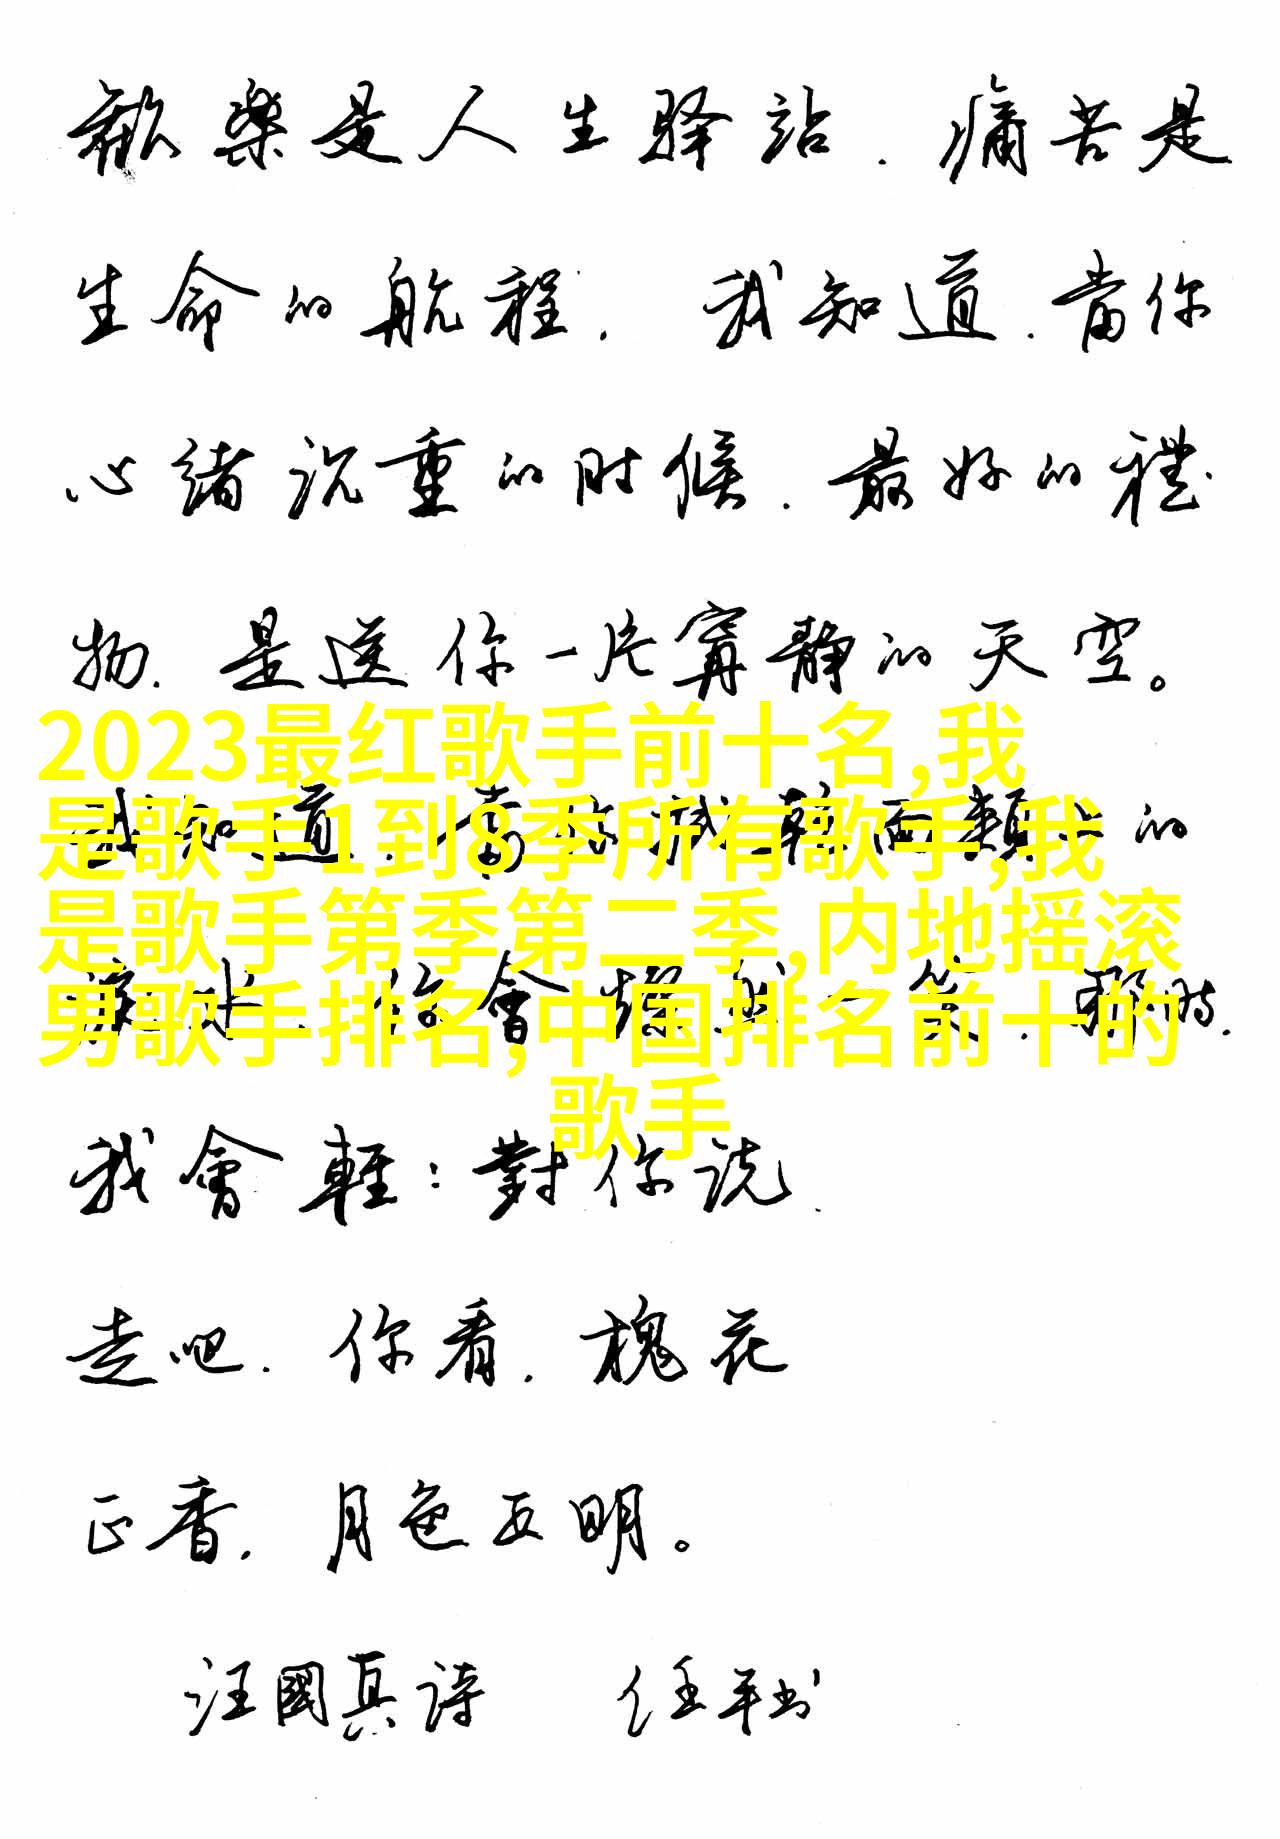 歡樂是人生驿站.痛苦是
生命的航程.我知道.當你
心緒沉重的时候.最好的禮
物.是送你一片寧靜的天空。
2023最红歌手前十名,我
是歌手1到8季所有歌手,我
是歌手第季第二季,内地摇滚
男歌手排名,中国排名前十的
歌手
我知道.當你拭乾面頰上的
淚水.你會燦然一笑.那时.
我會輕:對你说.
走吧.你看.槐花
正香.月色正明。
汪國真詩 任平书